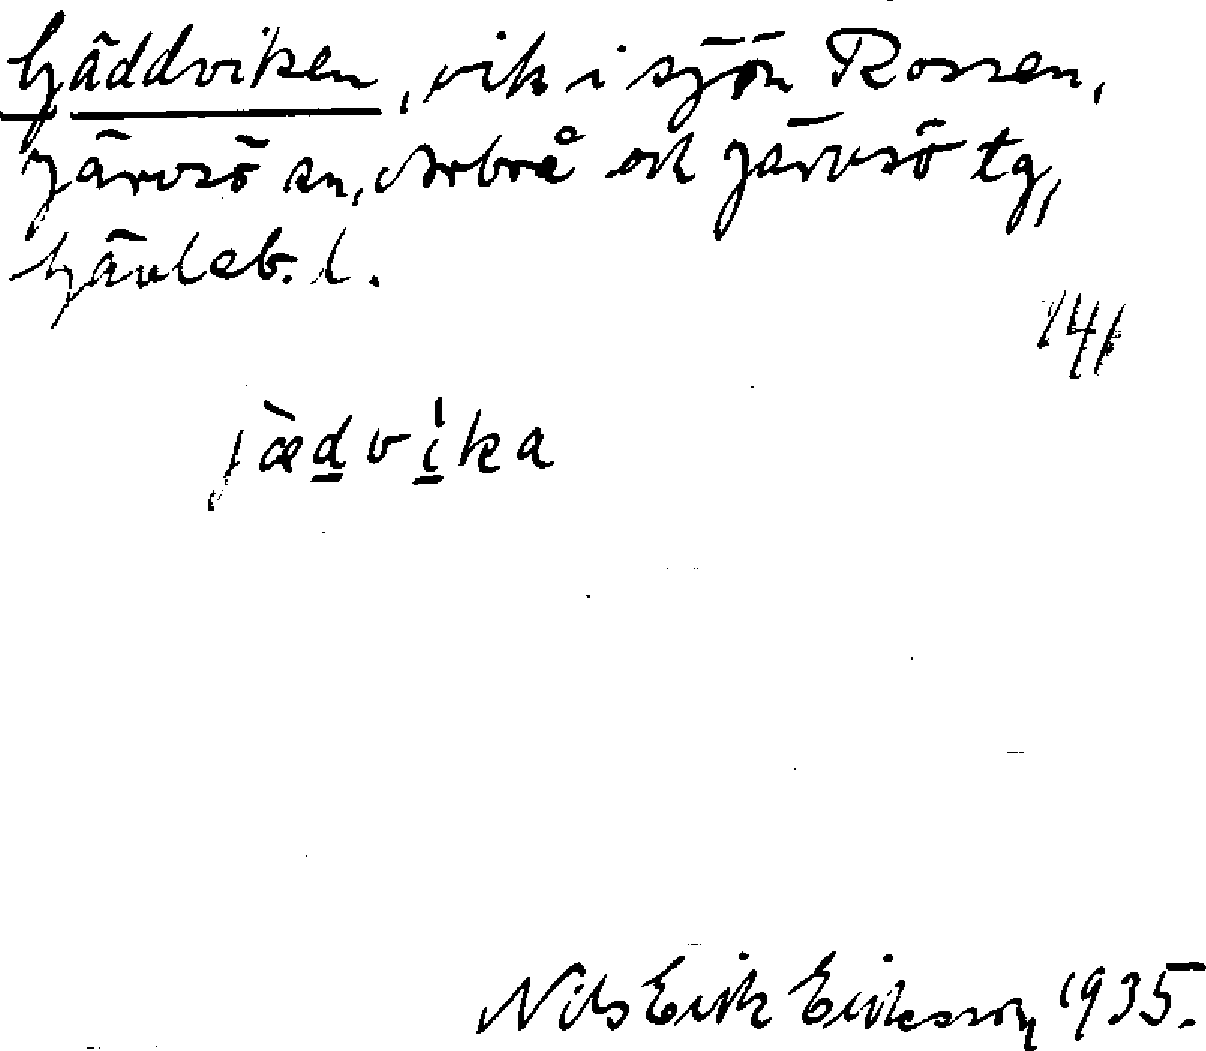 Gäddviken, vik i sjön Rossen,
Järvsö sn, Arbrå och Järvsö tg,
Gävleb. l.
141
jæ̀dvika
Nils Erik Eriksson 1935.